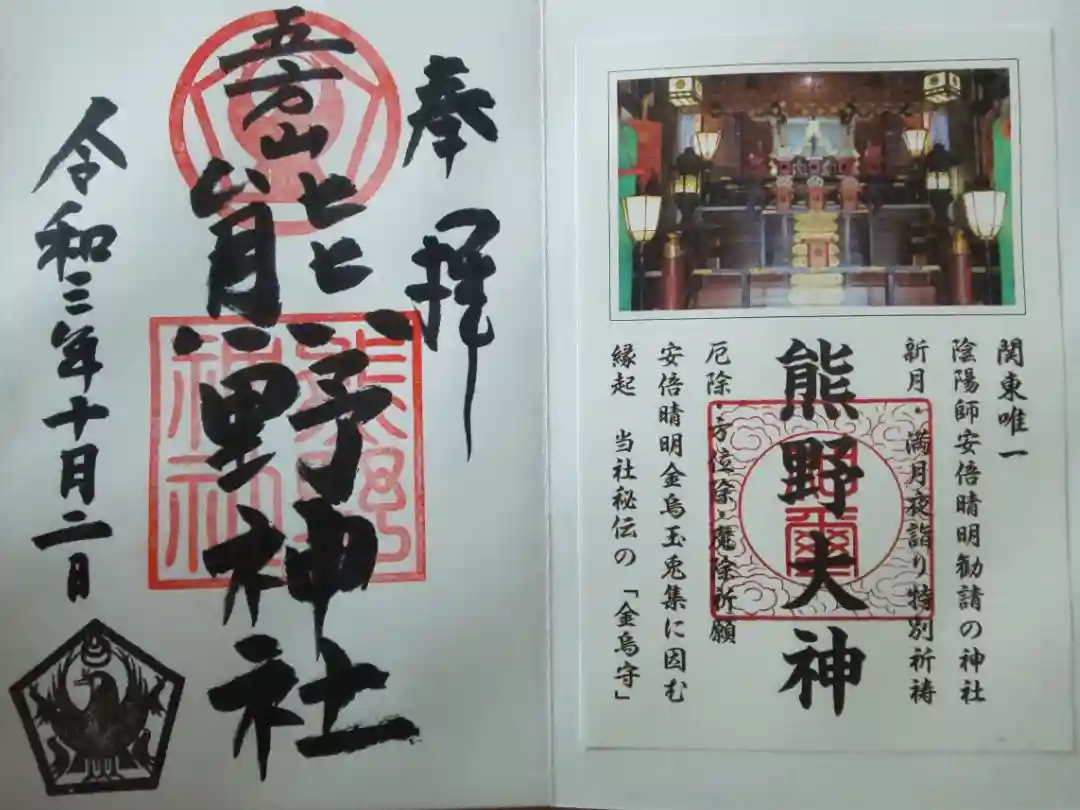 関東唯一
陰陽師安倍晴明勧請の神社
新月・満月夜詣り特別祈祷
熊野大神
厄除・方位除・魔除祈願
安倍晴明金烏玉兎集に因む
縁起 当社秘伝の「金烏守」
奉拝
五方山
熊野神社
熊野
神社
令和三年十月二日